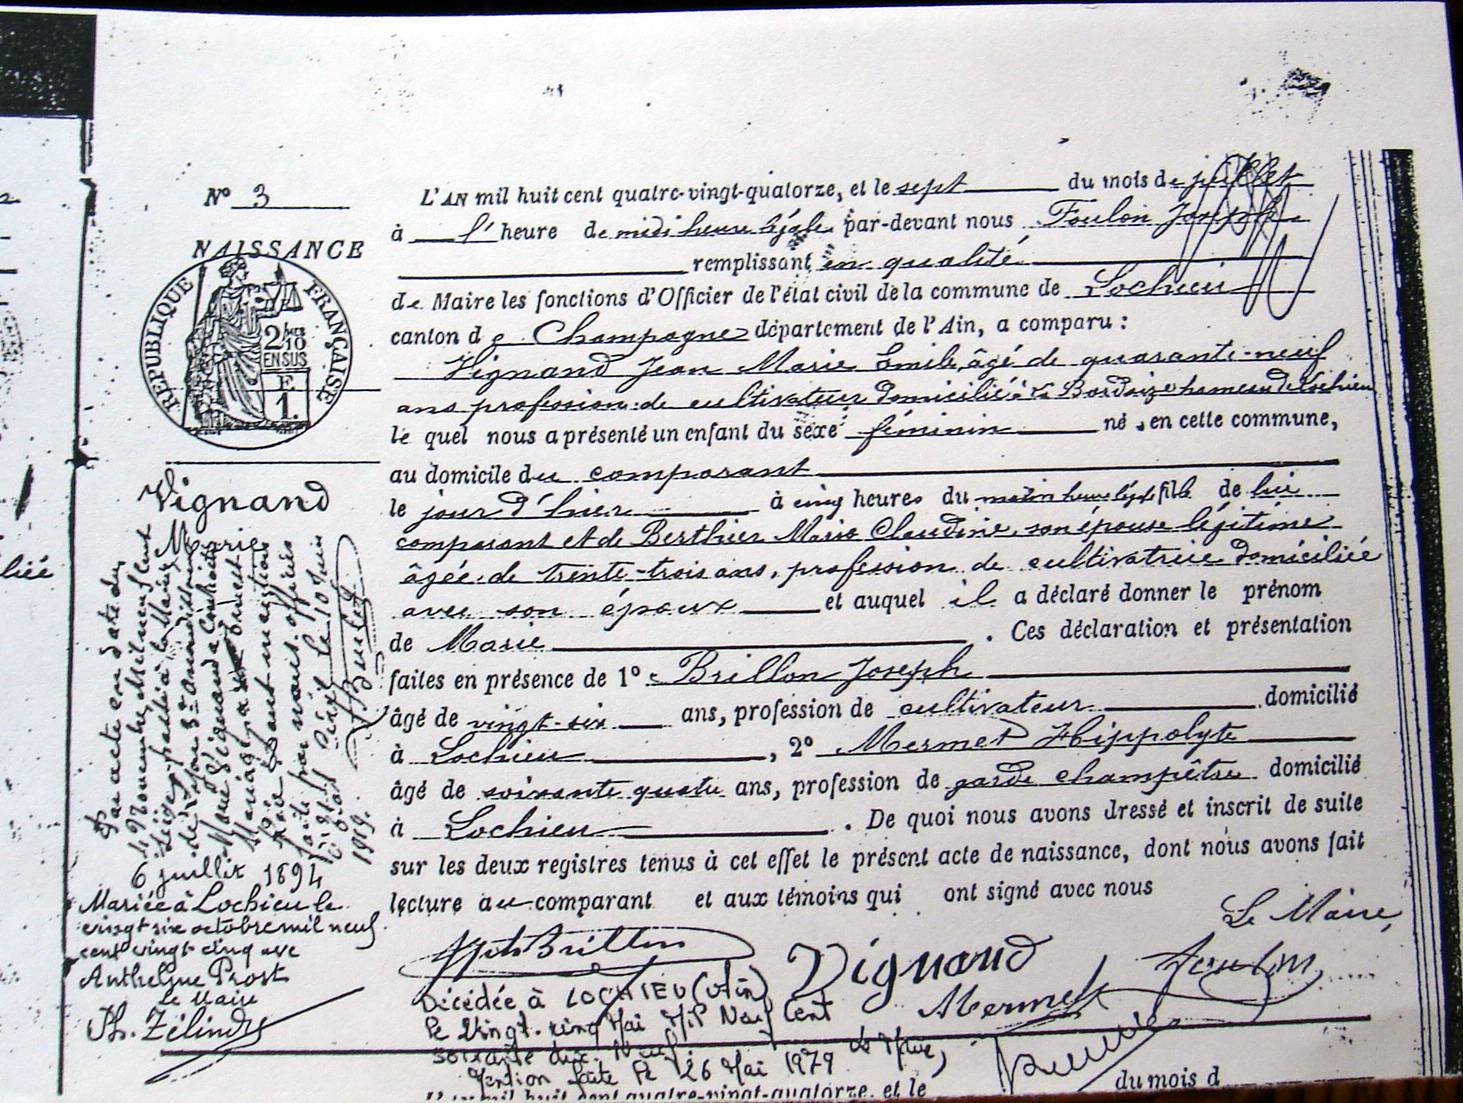 N° 3
NAISSANCE
RÉPUBLIQUE FRANÇAISE
2/10
EN SUS
E.
1.
Vignand
Marie
6 juillet 1894
L'AN mil huit cent quatre-vingt-quatorze, et le sept du mois de juillet
à l' heure de midi heure légale par-devant nous Foulon Joseph
remplissant en qualité
de Maire les fonctions d'Officier de l'état civil de la commune de Lochieu
canton de Champagne département de l'Ain, a comparu :
Vignand Jean Marie Emile, âgé de quarante-neuf
ans profession de cultivateur domicilié à La Bordaize hameau de Lochieu
le quel nous a présenté un enfant du sexe féminin né, en cette commune,
au domicile du comparant
le jour d'hier à cinq heures du matin heure légale fille de lui
comparant et de Berthier Marie Claudine son épouse légitime
âgée de trente-trois ans, profession de cultivatrice domiciliée
avec son époux et auquel il a déclaré donner le prénom
de Marie. Ces déclaration et présentation
faites en présence de 1° Brillon Joseph
âgé de vingt-six ans, profession de cultivateur domicilié
à Lochieu, 2° Mermet Hippolyte
âgé de soixante quatre ans, profession de garde champêtre domicilié
à Lochieu. De quoi nous avons dressé et inscrit de suite
sur les deux registres tenus à cet effet le présent acte de naissance, dont nous avons fait
lecture au comparant et aux témoins qui ont signé avec nous
Le Maire,
Jph Brillon Vignand Foulon
Mermet
Par acte en date du
4 Novembre
1919.
Mariée à Lochieu le
vingt six octobre mil neuf
cent vingt cinq avec
Anthelme Prost
Le Maire
Ph. Zélindre
Décédée à LOCHIEU (Ain)
le vingt-cinq Mai Mil Neuf Cent
soixante dix-Neuf.
Mention faite le 26 Mai 1979 Le Maire,
L'An mil huit cent quatre-vingt-quatorze, et le du mois d